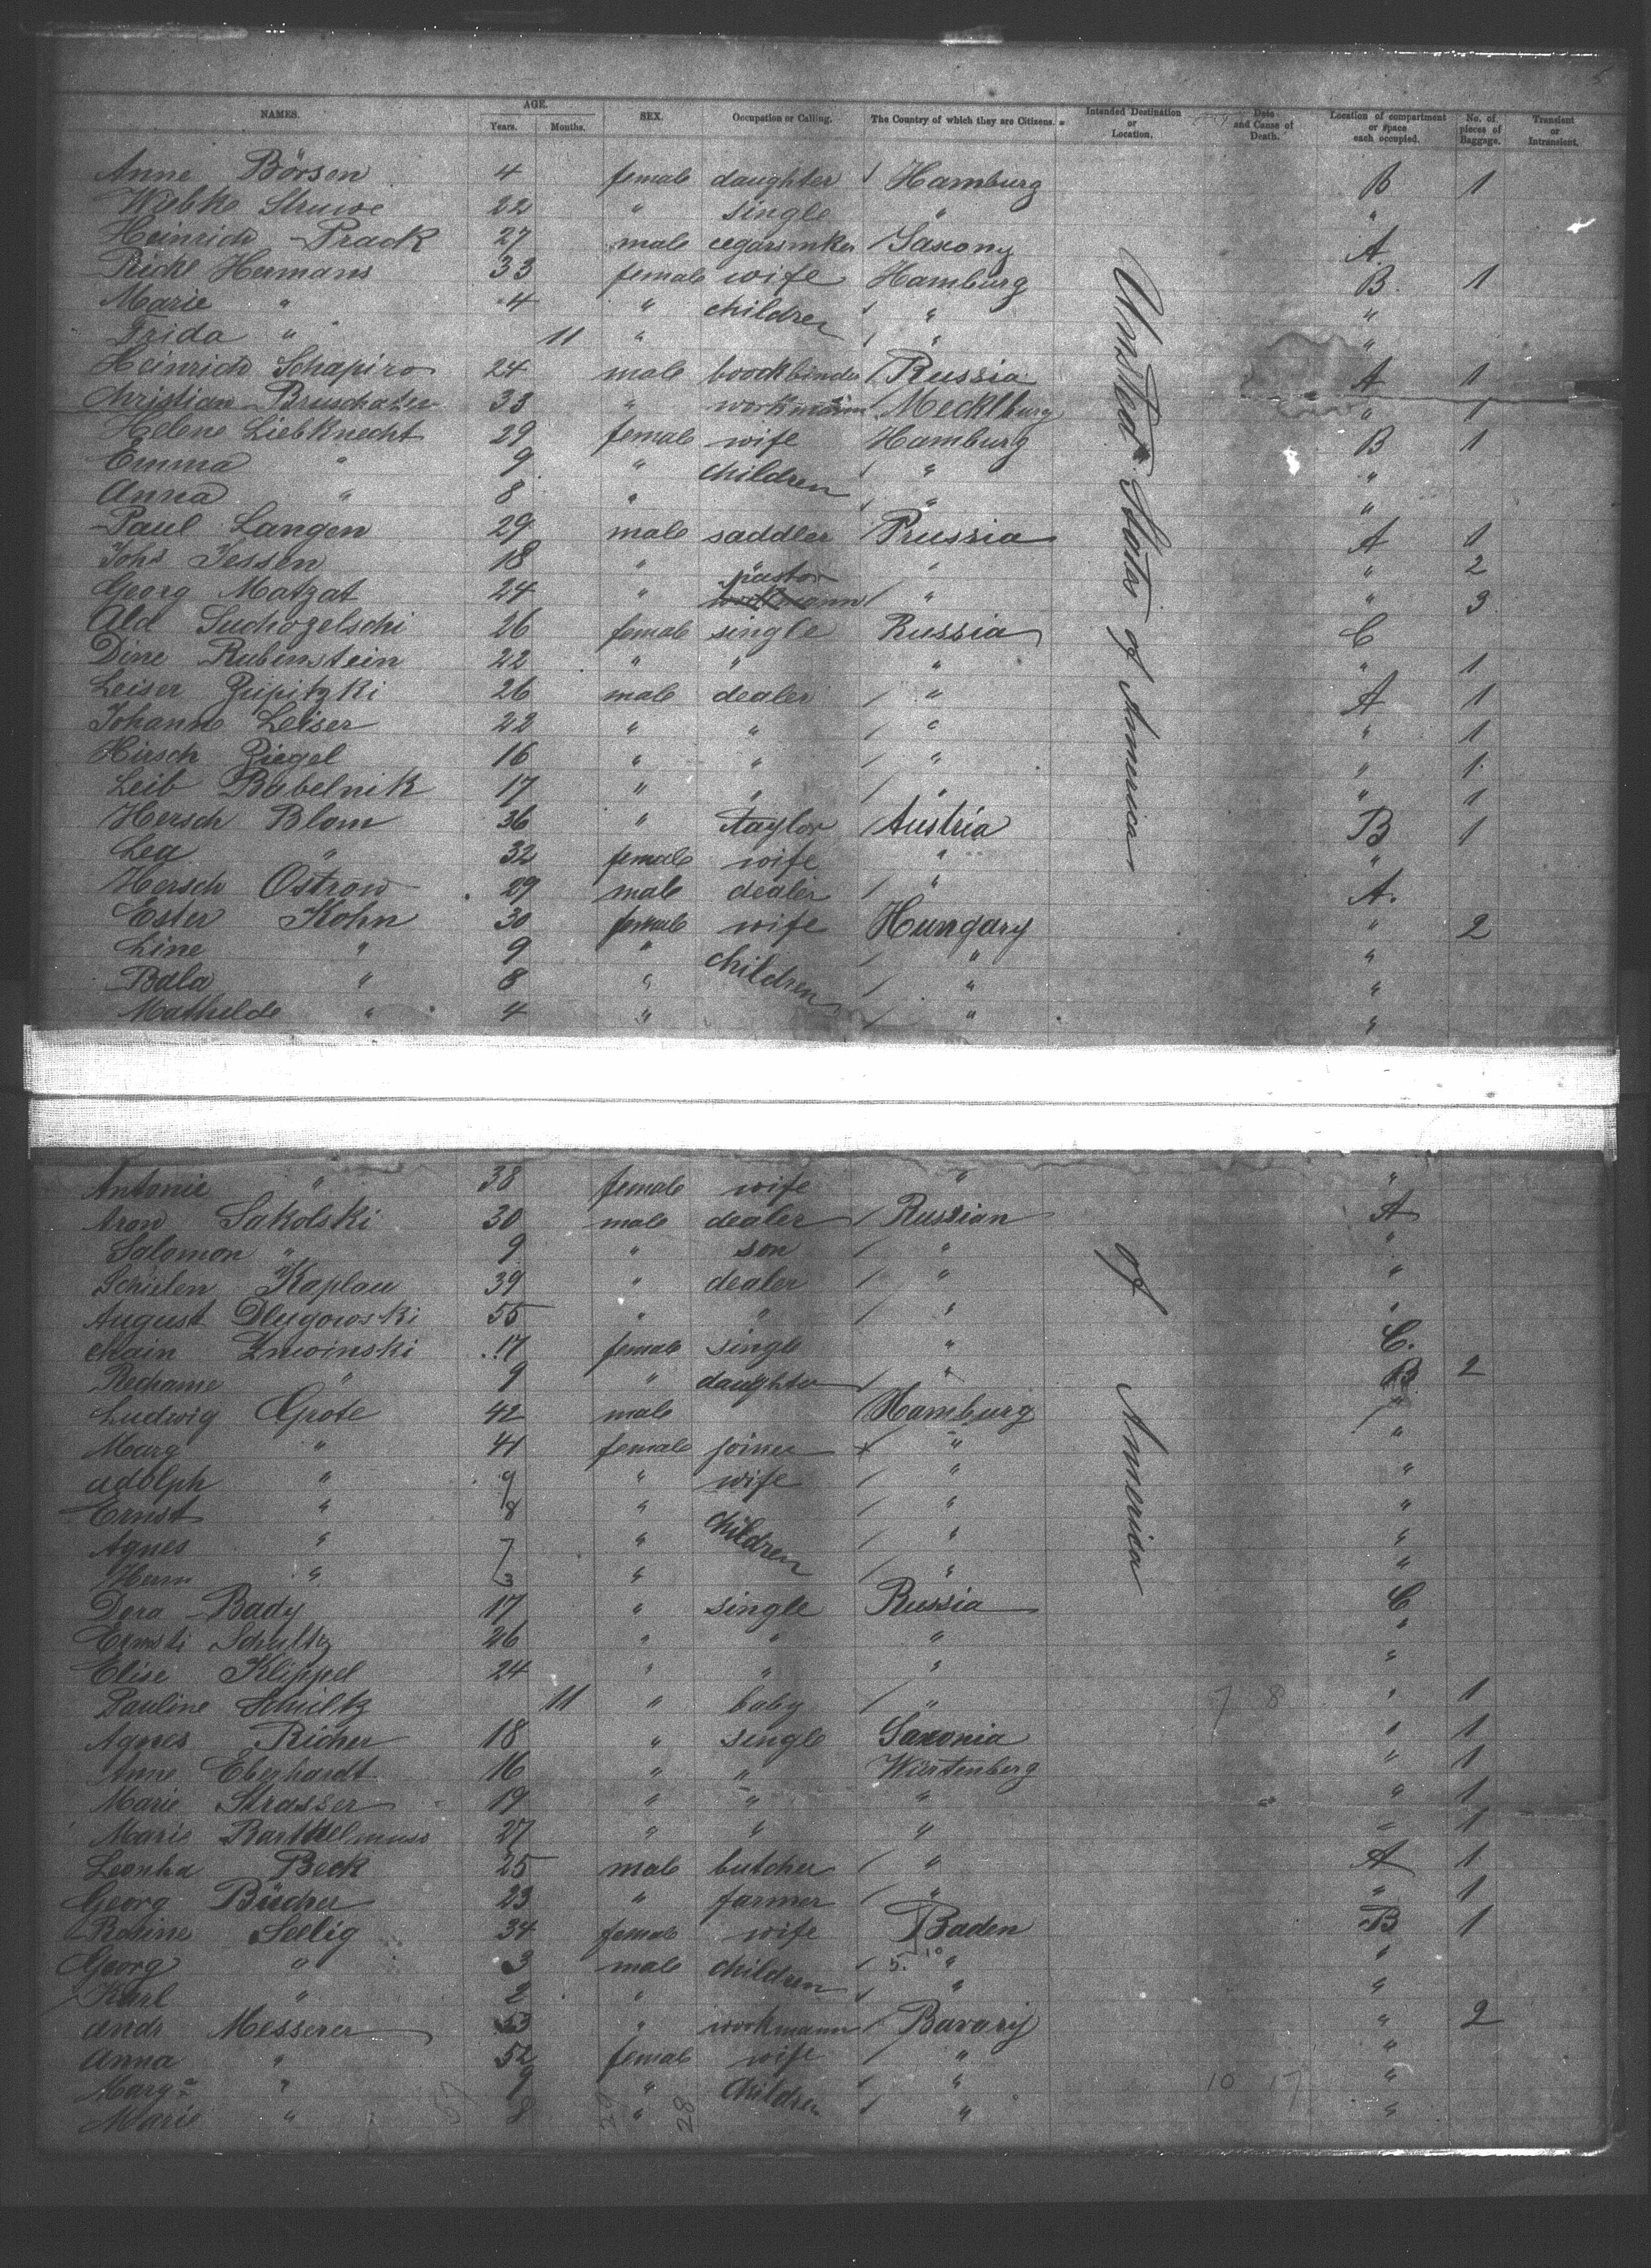 NAMES. AGE. Years. Months. SEX. Occupation or Calling. The Country of which they are Citizens. Intended Destination or Location. Date and Cause of Death. Location of compartment or space each occupied. No. of pieces of Baggage. Transient or Intransient.
Anne Börsen 4 female daughter Hamburg B 1
Wiebke Struwe 22 " single " "
Heinrich Prack 27 male Saxony A
Ricke Hermans 33 female wife Hamburg B 1
Marie " 4 " children " "
Frida " 11 " " "
Heinrich Schapiro 24 male Russia A 1
Christian 33 " workmann Mecklburg " 1
Helene Liebknecht 29 female wife Hamburg B 1
Emma " 9 " children " "
Anna " 8 " " "
Paul Langen 29 male saddler Prussia A 1
Johs Jessen 18 " " " 2
Georg Matzat 24 " pastor " " 3
Ald Suchozelschi 26 female single Russia C
Dine Rubinstein 22 " " " " 1
Leiser 26 male dealer " A 1
Johanne Leiser 22 " " " " 1
Hirsch Ziegel 16 " " " " 1
Leib Babelnik 17 " " " " 1
Hersch Blom 36 " taylor Austria B 1
Lea " 32 female wife " "
Hersch Ostrow 29 male dealer " A.
Ester Kohn 30 female wife Hungary " 2
Line " 9 " children " "
Bala " 8 " " "
Mathelde " 4 " " "
United States of Ammerica
Antonie " 38 female wife " "
Aron Sakolski 30 male dealer Russian A
Salomon " 9 " son " "
Schielen Kaplan 39 " dealer " "
August Dlugowski 55 " " " "
Chain Zwoinski 17 female single " C.
Rechame " 9 " daughter " B 2
Ludwig Grote 42 male Hamburg "
Marg " 41 female joiner " "
Adolph " 9 " wife " "
Ernst " 8 " " "
Agnes " 7 " children " "
Herm " 3 " " "
Dora Bady 17 " single Russia C
Schultz 26 " " " "
Elise Klippel 24 " " " "
Pauline Schultz 11 " baby " 7 8 " 1
Agnes Richer 18 " single Saxonia " 1
Anne Eberhardt 16 " " Würtenberg " 1
Marie Strasser 19 " " " " 1
Marie Barthelmuss 27 " " " " 1
Beck 25 male butcher " A 1
Georg Bücher 23 " farmer " " 1
Rosine Seelig 34 female wife Baden B 1
Georg " 3 male children 5. 10 " "
Karl " 2 " " "
Andr Messerer 53 " workmann Bavary " 2
Anna " 52 female wife " "
Marga " 9 " children " 10 17 "
Marie " 8 " " "
of America